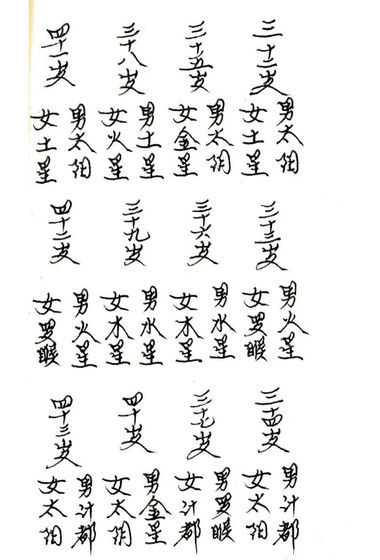 三十二岁
男太阳
女土星
三十三岁
男火星
女罗睺
三十四岁
男计都
女太阳
三十五岁
男太阴
女金星
三十六岁
男水星
女木星
三十七岁
男罗睺
女计都
三十八岁
男土星
女火星
三十九岁
男水星
女木星
四十岁
男金星
女太阴
四十一岁
男太阳
女土星
四十二岁
男火星
女罗睺
四十三岁
男计都
女太阳